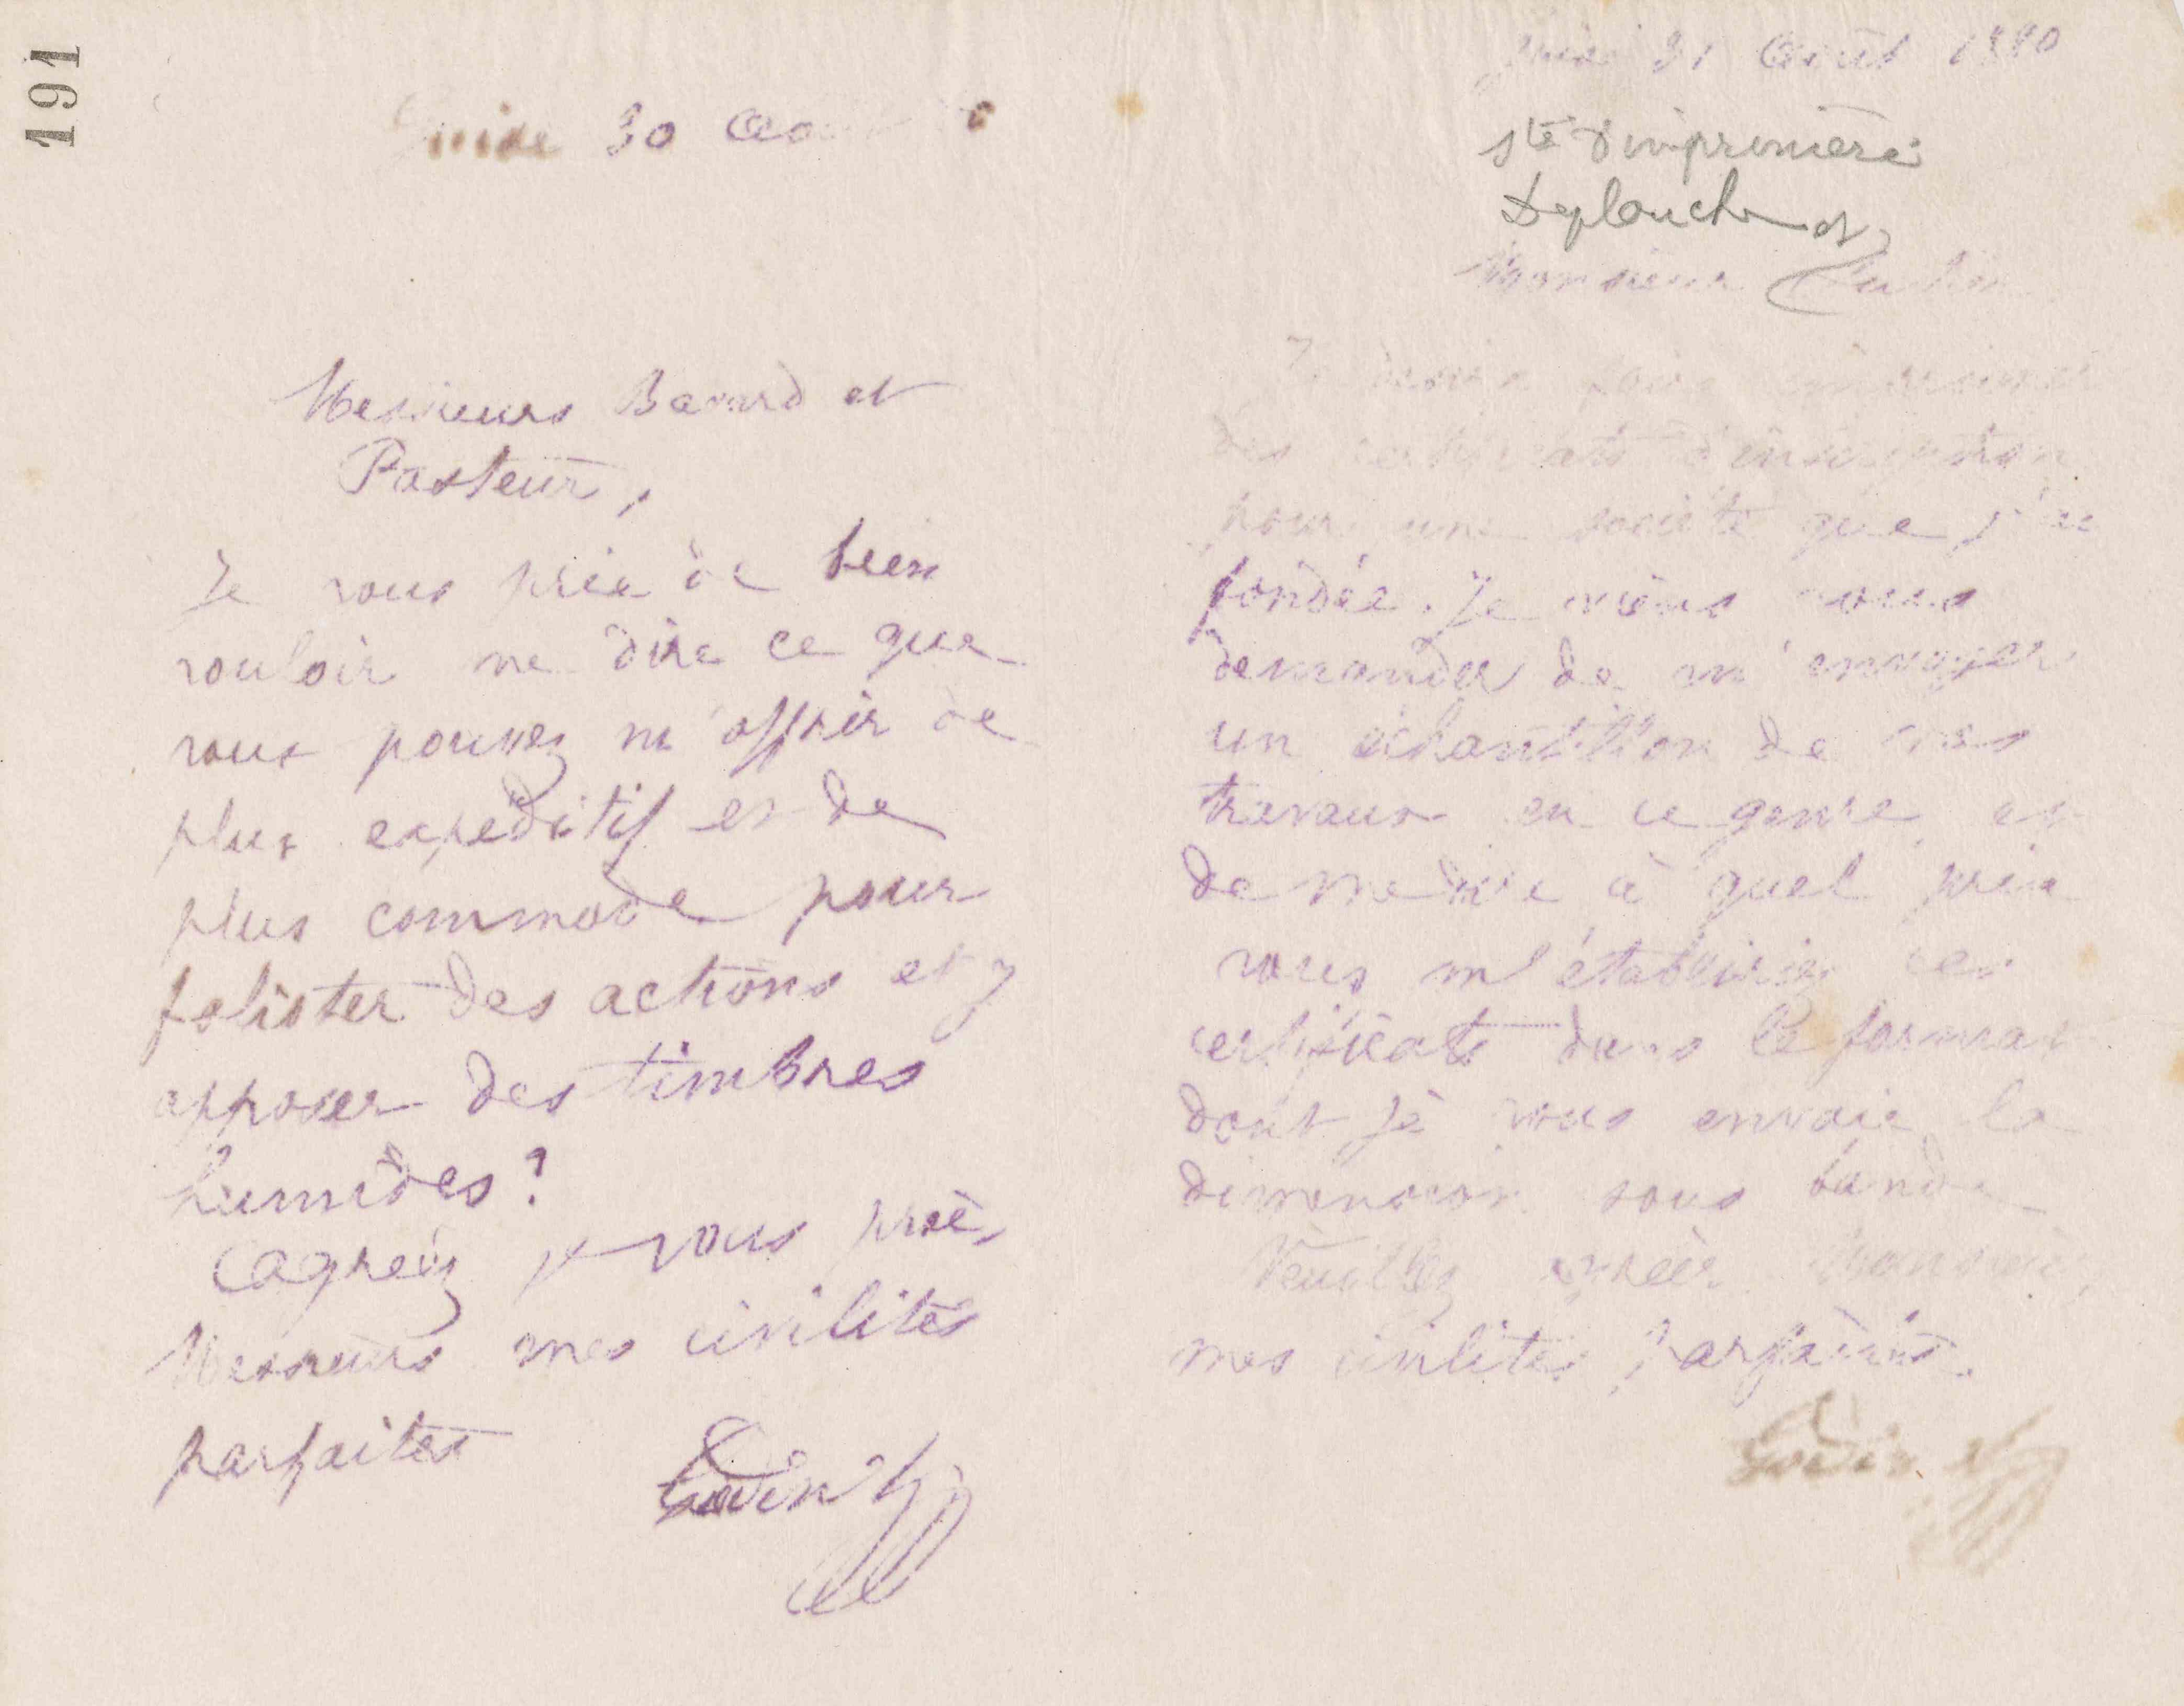 191
Guise 30 Aout
Messieurs Bavard et
Pasteur,
Je vous prie de bien
vouloir me dire ce que
vous pouvez m'offrir de
plus expéditif et de
plus commode pour
folioter des actions et y
apposer des timbres
humides?
Agréez je vous prie,
Messieurs mes civilités
parfaites
Godin
Guise 31 Août 1880
Sté d'imprimerie
Monsieur
Je désire faire imprimer
des certificats d'inscription
pour une société que j'ai
fondée. Je viens vous
demander de m'envoyer
un échantillon de vos
travaux en ce genre et
de me dire à quel prix
vous m'établiriez ces
certificats dans le format
dont je vous envoie la
dimension sous bande
Veuillez agréer Monsieur
mes civilités parfaites.
Godin